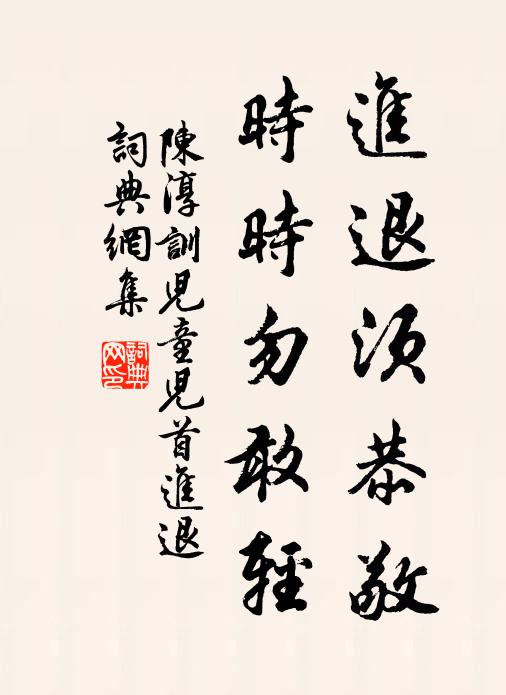 進退須恭敬
時時勿敢輕
陳淳訓兒童兒首進退
詞典網集
詞典網印